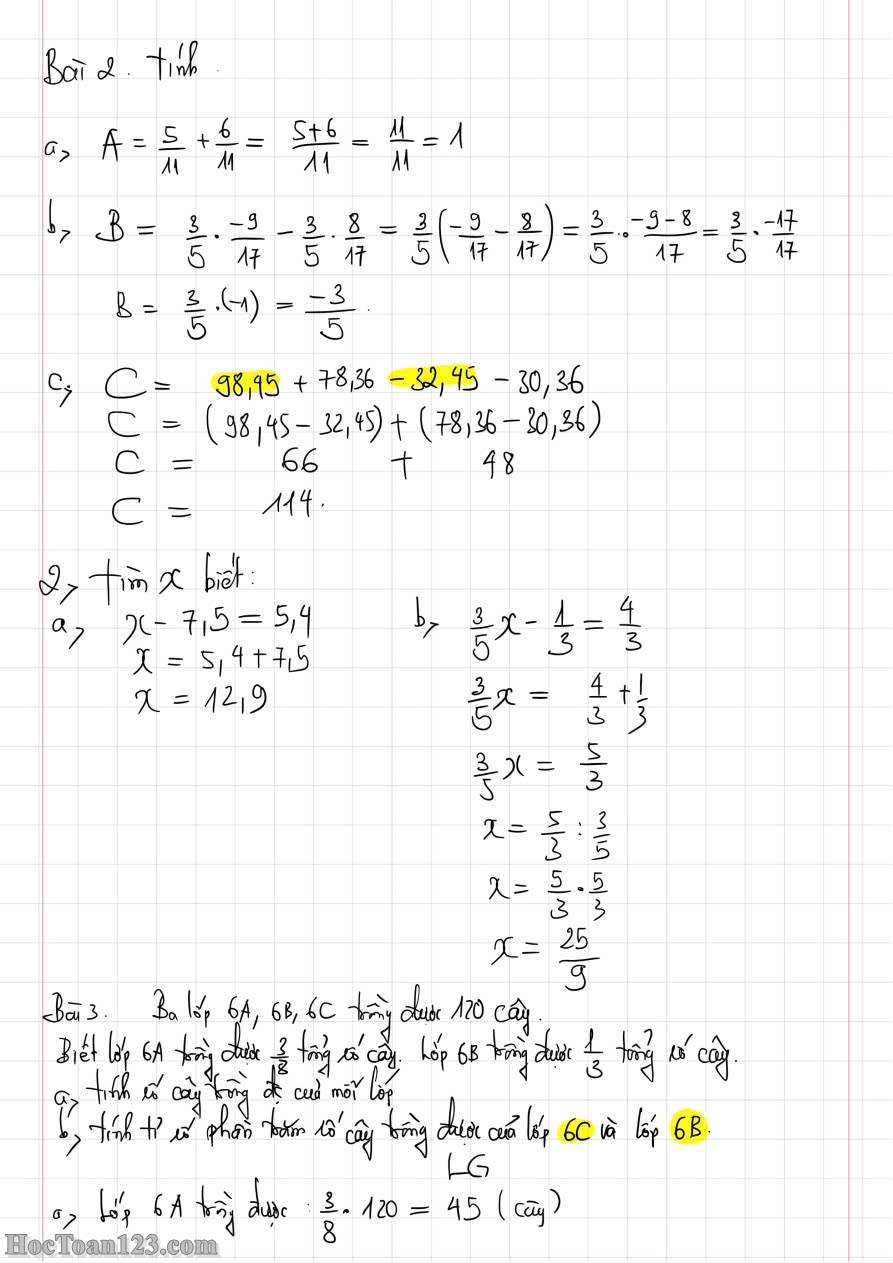 Bài 2. Tính.
a, A = 5/11 + 6/11 = (5+6)/11 = 11/11 = 1
b, B = 3/5 . -9/17 - 3/5 . 8/17 = 3/5 (-9/17 - 8/17) = 3/5 . (-9-8)/17 = 3/5 . -17/17
B = 3/5 . (-1) = -3/5.
c, C = 98,45 + 78,36 - 32,45 - 30,36
C = (98,45 - 32,45) + (78,36 - 30,36)
C = 66 + 48
C = 114.
2, Tìm x biết:
a, x - 7,5 = 5,4
x = 5,4 + 7,5
x = 12,9
b, 3/5 x - 1/3 = 4/3
3/5 x = 4/3 + 1/3
3/5 x = 5/3
x = 5/3 : 3/5
x = 5/3 . 5/3
x = 25/9
Bài 3. Ba lớp 6A, 6B, 6C trồng được 120 cây.
Biết lớp 6A trồng được 3/8 tổng số cây. Lớp 6B trồng được 1/3 tổng số cây.
a, Tính số cây trồng đc của mỗi lớp
b, Tính tỉ số phần trăm số cây trồng được của lớp 6C và lớp 6B.
LG
a, Lớp 6A trồng được : 3/8 . 120 = 45 (cây)
HocToan123.com